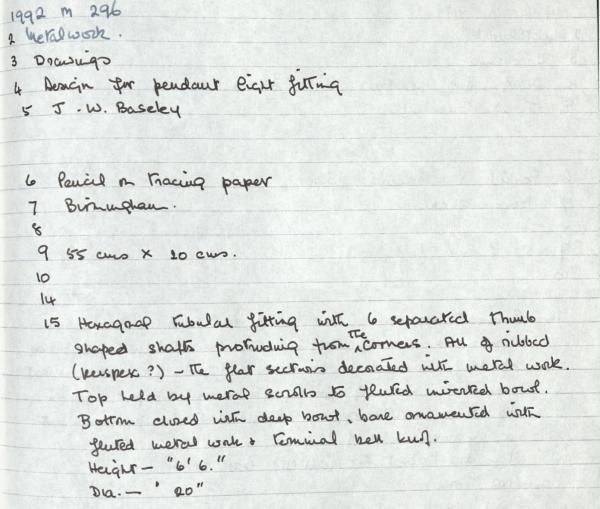 1992 M 296
2 Metalwork.
3 Drawings
4 Design for pendant light fitting
5 J. W. Baseley
6 Pencil on tracing paper
7 Birmingham.
8
9 55 cms x 20 cms.
10
14
15 Hexagonal tubular fitting with 6 separated thumb
shaped shafts protruding from the corners. All of ribbed
(perspex?) - the flat sections decorated with metal work.
Top held by metal scrolls to fluted inverted bowl.
Bottom closed with deep bowl, base ornamented with
fluted metal work & terminal bell
Height - "6' 6."
Dia. - ' 20"